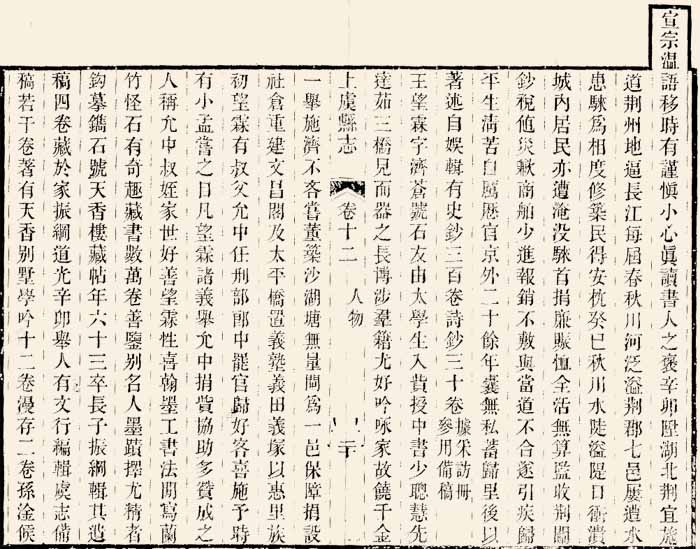 宣宗溫語移時有謹愼小心眞讀書人之褒辛卯陞湖北荆宜施
道荆州地逼長江每屆春秋川河泛溢荆郡七邑屢遭水
患駷爲相度修築民得安枕癸巳秋川水陡溢隄口衝潰
城內居民亦遭淹没駷首捐廉賑恤全活無算監收荆關
鈔稅值災歉商船少進報銷不敷與當道不合遂引疾歸
平生淸苦自厲歷官京外二十餘年囊無私蓄歸里後以
著述自娛輯有史鈔三百卷詩鈔三十卷據采訪冊參用備稿
王望霖字濟蒼號石友由太學生入貲授中書少聰慧先
達茹三樵見而器之長博涉羣籍尤好吟咏家故饒千金
上虞縣志 卷十二 人物 二十
一舉施濟不吝嘗董築沙湖塘無量閘爲一邑保障捐設
社倉重建文昌閣及太平橋置義塾義田義塚以惠里族
初望霖有叔父允中任刑部郎中罷官歸好客喜施予時
有小孟嘗之目凡望霖諸義舉允中捐貲協助多贊成之
人稱允中叔姪家世好善望霖性喜翰墨工書法閒寫蘭
竹怪石有奇趣藏書數萬卷善鑒别名人墨蹟擇尤精者
鈎摹鐫石號天香樓藏帖年六十三卒長子振綱輯其遺
稿四卷藏於家振綱道光辛卯舉人有文行編輯虞志備
稿若干卷著有天香别墅學吟十二卷漫存二卷孫淦候